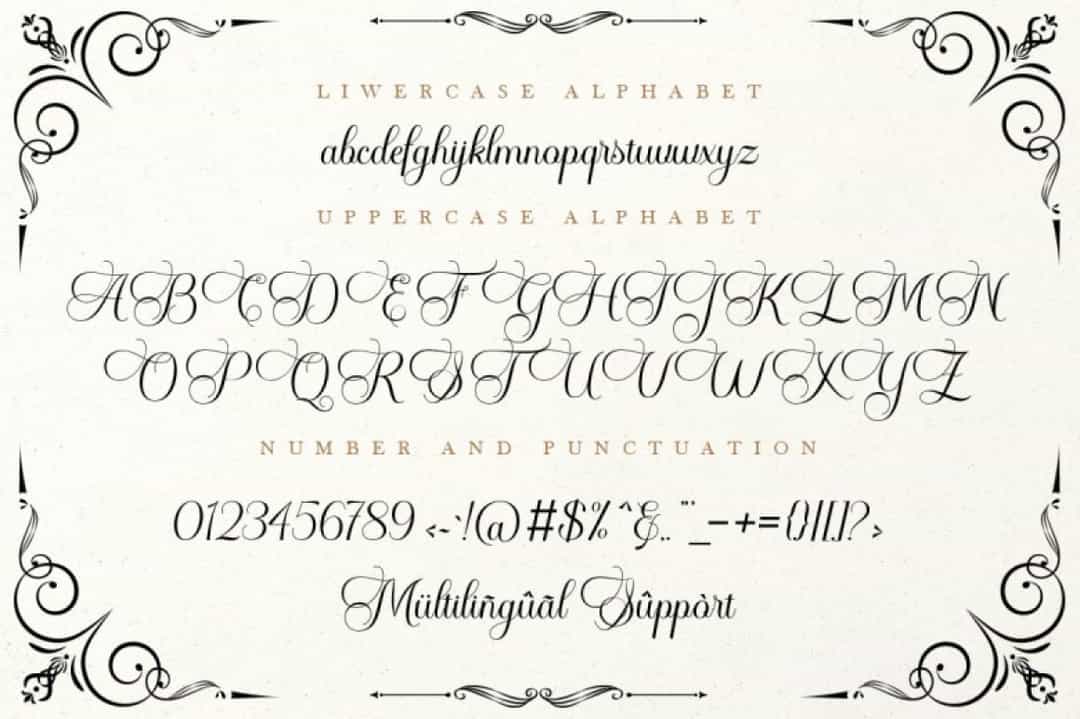 LIWERCASE ALPHABET
abcdefghijklmnopqrstuvwxyz
UPPERCASE ALPHABET
ABCDEFGHIJKLMN
OPQRSTUVWXYZ
NUMBER AND PUNCTUATION
0123456789 <~`!@#$%^&.. ¨_-+={}|[]?>
Mültiliñgûãl Sûppòrt